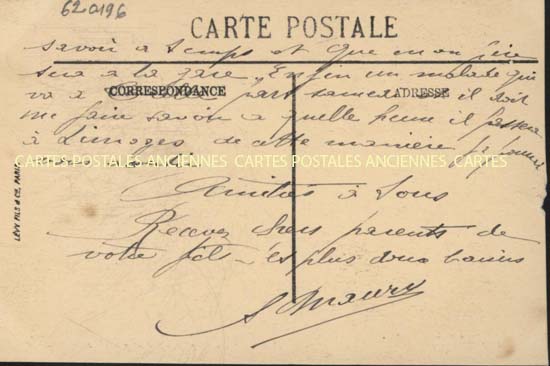 620196
CARTE POSTALE
savoir a temps et que mon
sera a la gare Enfin un malade qui
CORRESPONDANCE
ADRESSE
va a part samedi il doit
me faire savoir a quelle heure il passera
à Limoges de cette manière je
CARTES POSTALES ANCIENNES CARTES POSTALES ANCIENNES CARTES POSTALES
Amitiés à tous
Recevez chers parents de
votre fils les plus doux baisers
LÉVY FILS & CIE, PARIS